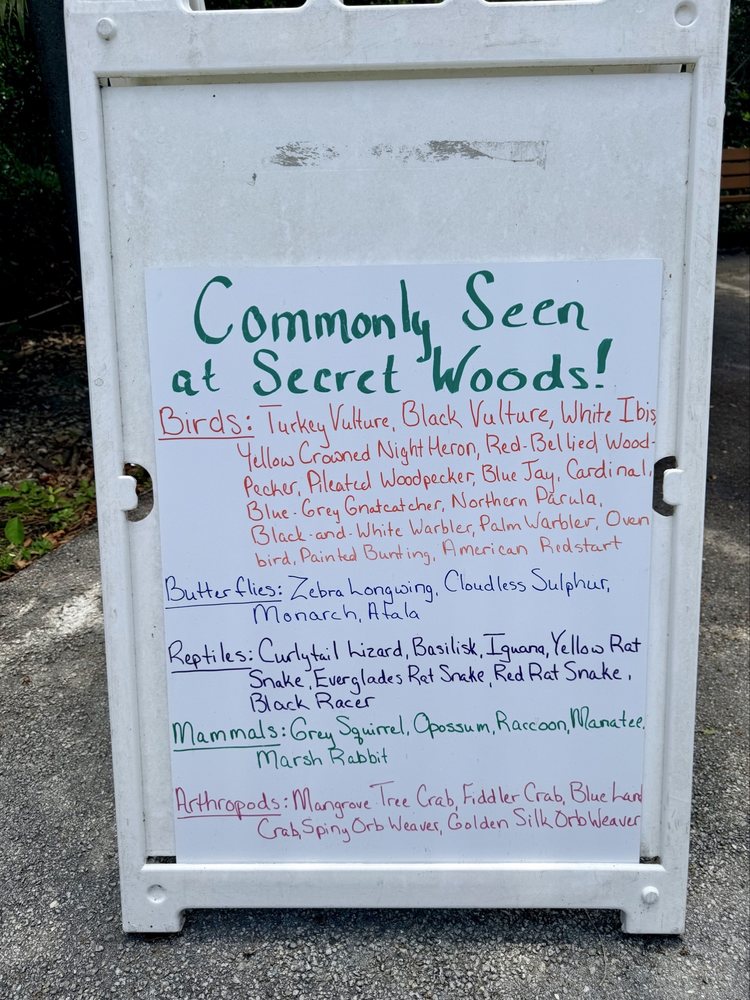 Commonly Seen
at Secret Woods!
Birds: Turkey Vulture, Black Vulture, White Ibis,
Yellow Crowned Night Heron, Red-Bellied Wood-
Pecker, Pileated Woodpecker, Blue Jay, Cardinal,
Blue-Grey Gnatcatcher, Northern Parula,
Black-and-White Warbler, Palm Warbler, Oven
bird, Painted Bunting, American Redstart
Butterflies: Zebra Longwing, Cloudless Sulphur,
Monarch, Atala
Reptiles: Curlytail Lizard, Basilisk, Iguana, Yellow Rat
Snake, Everglades Rat Snake, Red Rat Snake,
Black Racer
Mammals: Grey Squirrel, Opossum, Raccoon, Manatee,
Marsh Rabbit
Arthropods: Mangrove Tree Crab, Fiddler Crab, Blue Land
Crab, Spiny Orb Weaver, Golden Silk Orb Weaver